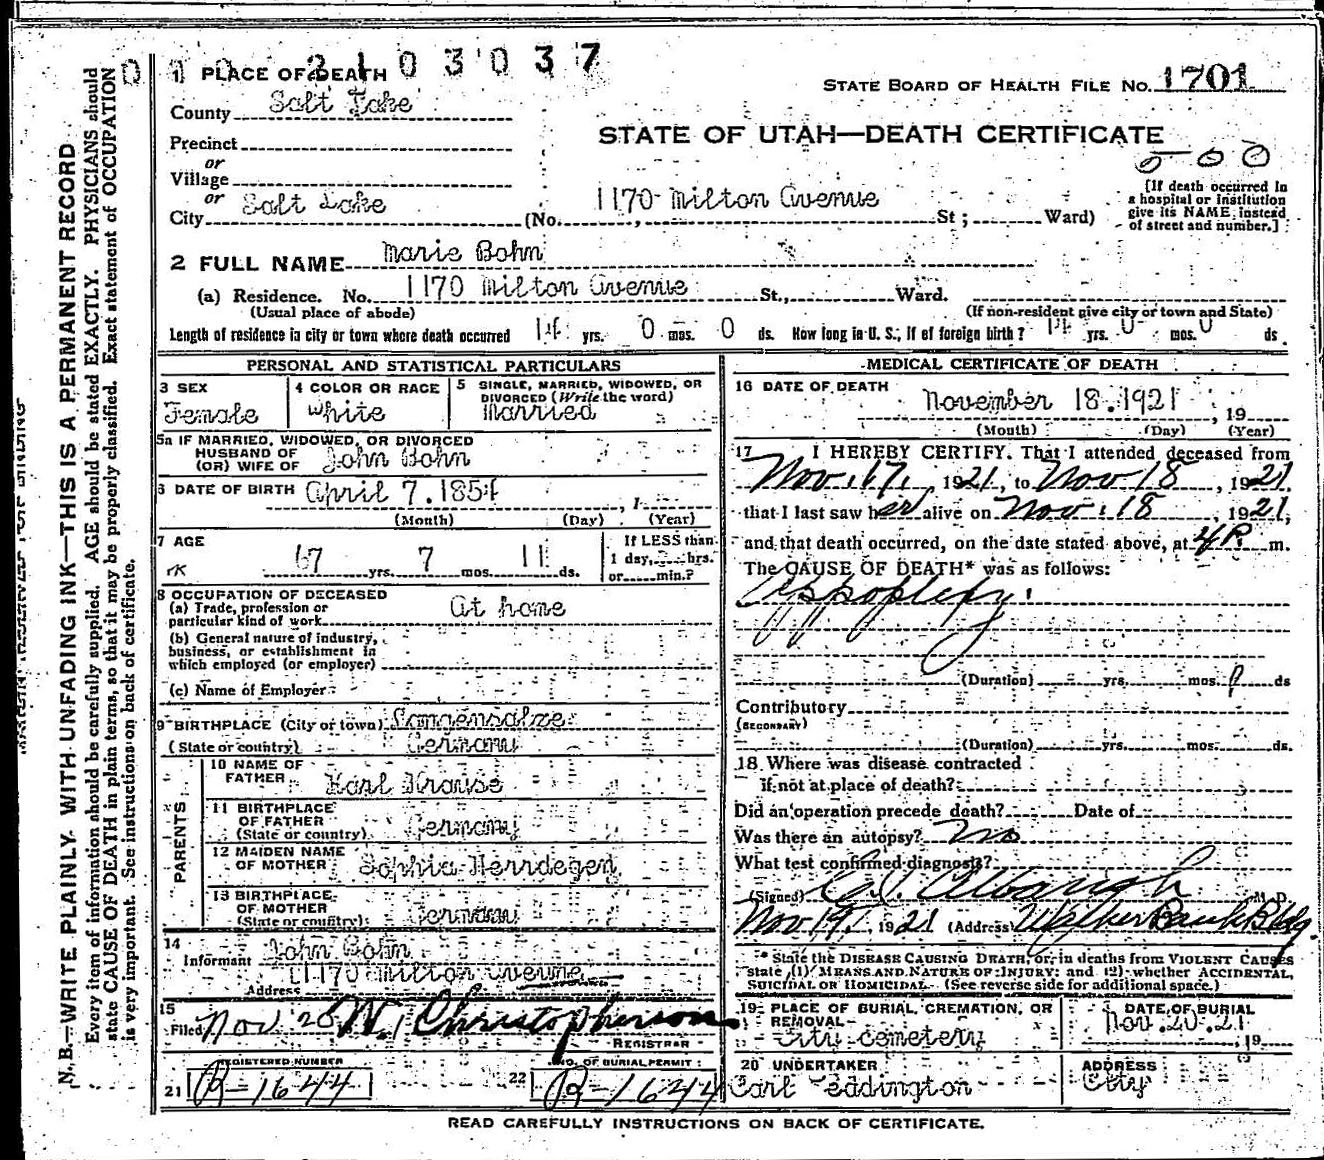 1 PLACE OF DEATH
2103037
STATE BOARD OF HEALTH FILE NO. 1701
County Salt Lake
STATE OF UTAH—DEATH CERTIFICATE
Precinct
500
or
Village
or
City Salt Lake (No. 1170 Milton Avenue St; Ward)
[If death occurred in a hospital or institution give its NAME instead of street and number.]
2 FULL NAME Marie Bohn
(a) Residence. No. 1170 Milton Avenue St., Ward.
(Usual place of abode) (If non-resident give city or town and State)
Length of residence in city or town where death occurred 14 yrs. 0 mos. 0 ds. How long in U. S., if of foreign birth? 14 yrs. 0 mos. 0 ds.
PERSONAL AND STATISTICAL PARTICULARS
3 SEX Female
4 COLOR OR RACE White
5 SINGLE, MARRIED, WIDOWED, OR DIVORCED (Write the word) Married
5a IF MARRIED, WIDOWED, OR DIVORCED
HUSBAND OF
(OR) WIFE OF John Bohn
6 DATE OF BIRTH April 7. 1854 , 1
(Month) (Day) (Year)
7 AGE 67 yrs. 7 mos. 11 ds.
If LESS than
1 day, hrs.
or min.?
8 OCCUPATION OF DECEASED
(a) Trade, profession or
particular kind of work At home
(b) General nature of industry,
business, or establishment in
which employed (or employer)
(c) Name of Employer
9 BIRTHPLACE (City or town) Langensalze
(State or country) Germany
PARENTS
10 NAME OF
FATHER Karl Krause
11 BIRTHPLACE
OF FATHER
(State or country) Germany
12 MAIDEN NAME
OF MOTHER Sophia Herrdegen
13 BIRTHPLACE
OF MOTHER
(State or country) Germany
14
Informant John Bohn
Address 1170 Milton Avenue
15
Filed Nov 28 W. Christopherson
REGISTRAR
REGISTERED NUMBER
21 R-1644
NO. OF BURIAL PERMIT
22 R-1644
MEDICAL CERTIFICATE OF DEATH
16 DATE OF DEATH
November 18. 1921 , 19
(Month) (Day) (Year)
17 I HEREBY CERTIFY. That I attended deceased from
Nov. 17. , 1921, to Nov 18 , 1921.
that I last saw her alive on Nov. 18 , 1921,
and that death occurred, on the date stated above, at 4 P. m.
The CAUSE OF DEATH* was as follows:
Appoplexy.
(Duration) yrs. mos. ds
Contributory
(SECONDARY)
(Duration) yrs. mos. ds.
18 Where was disease contracted
if not at place of death?
Did an operation precede death? Date of
Was there an autopsy? no
What test confirmed diagnosis?
(Signed) Albaugh M. D.
Nov 19. , 1921 (Address) Walker Bank Bldg.
* State the DISEASE CAUSING DEATH, or, in deaths from VIOLENT CAUSES
state (1) MEANS AND NATURE OF INJURY: and (2) whether ACCIDENTAL,
SUICIDAL OR HOMICIDAL. (See reverse side for additional space.)
19 PLACE OF BURIAL, CREMATION, OR
REMOVAL
City Cemetery
DATE OF BURIAL
Nov. 20. 21 19
20 UNDERTAKER
Carl Eddington
ADDRESS
City
READ CAREFULLY INSTRUCTIONS ON BACK OF CERTIFICATE.
N. B.—WRITE PLAINLY WITH UNFADING INK—THIS IS A PERMANENT RECORD
Every item of information should be carefully supplied. AGE should be stated EXACTLY. PHYSICIANS should
state CAUSE OF DEATH in plain terms, so that it may be properly classified. Exact statement of OCCUPATION
is very important. See instructions on back of certificate.